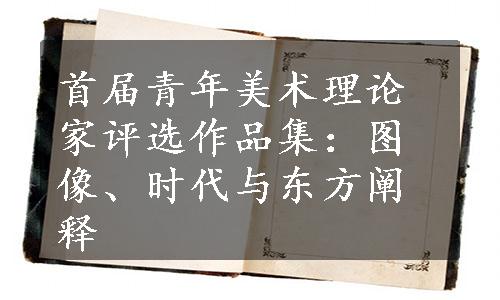 首届青年美术理论
家评选作品集：图
像、时代与东方阐
释